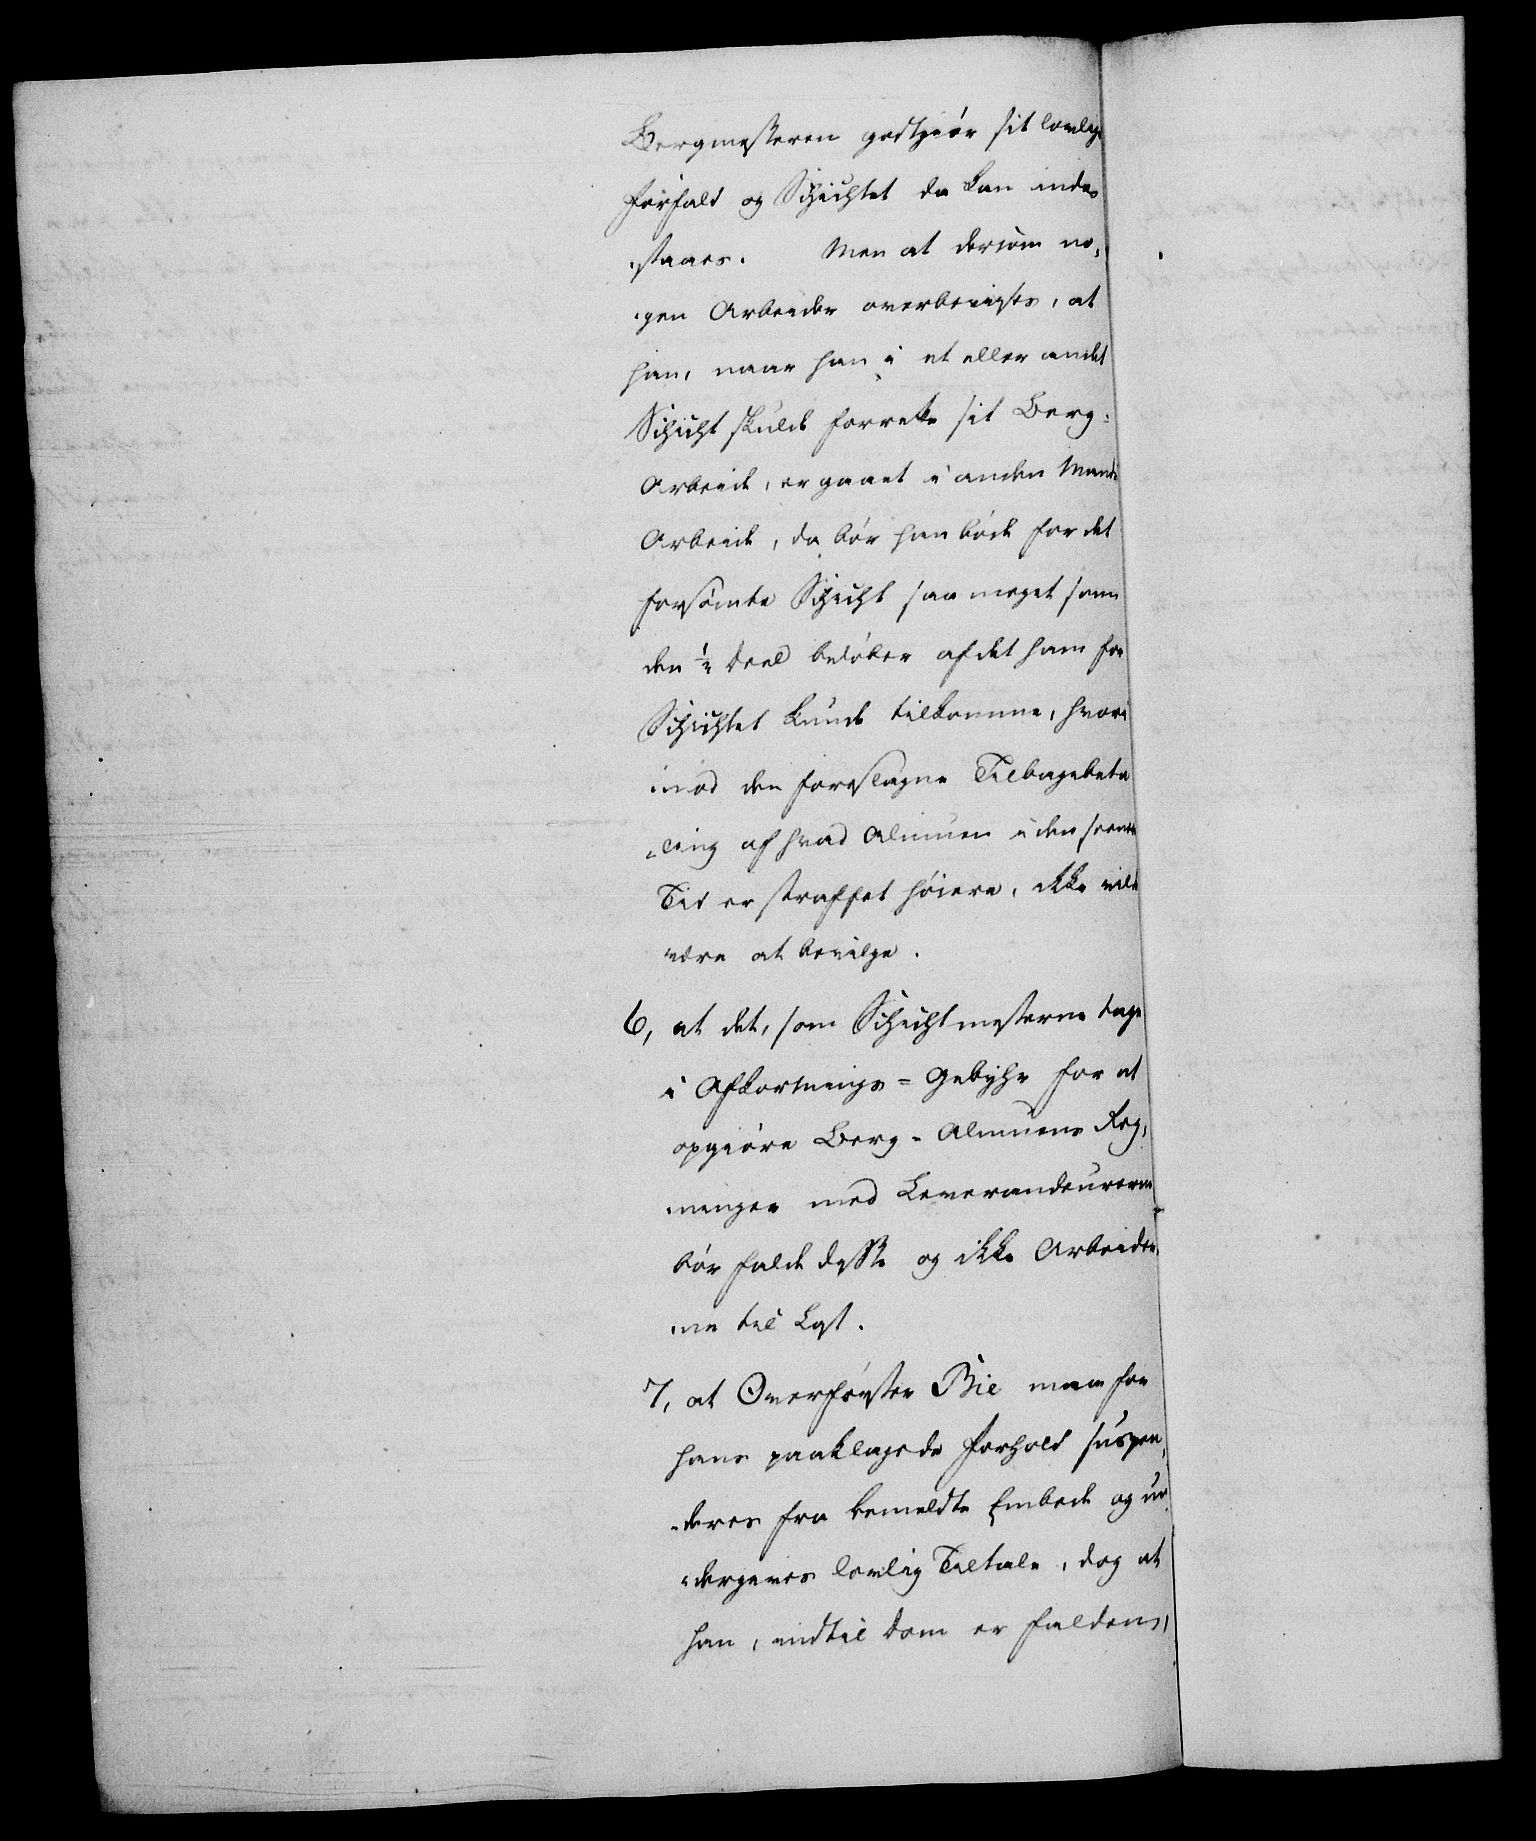 Bergmesteren godtgiør sit lovlige
forfald og Schichtet da kan inde¬
staaes. Men at dersom no,
gen Arbeider overbeviises, at
han, naar han i et eller andet
Schicht skulde forrette sit Berg=
Arbeide, er gaaet i anden Mands
Arbeide, da bør han bøde for det
forsømte Schicht saa meget som
den ½ Deel beløber af det ham for
Schichtet kunde tilkomme, hvori
imod den foreslagne Tilbagebeta
ling af hvad Almuen i den seenere
Tid er straffet høiere, ikke vilde
være at bevilge.
6, at det, som Schichtmesterne tage
i Afkortnings=Gebyhr for at
opgiøre Berg-Almuens Reg,
ninger med Leverandeurerne
bør falde disse og ikke Arbeider,
ne til Last.
7, at Overførster Bie maa for
hans paaklagede Forhold suspen,
deres fra bemeldte Embede og un
dergives lovlig Tiltale, dog at
han, indtil Dom er falden,